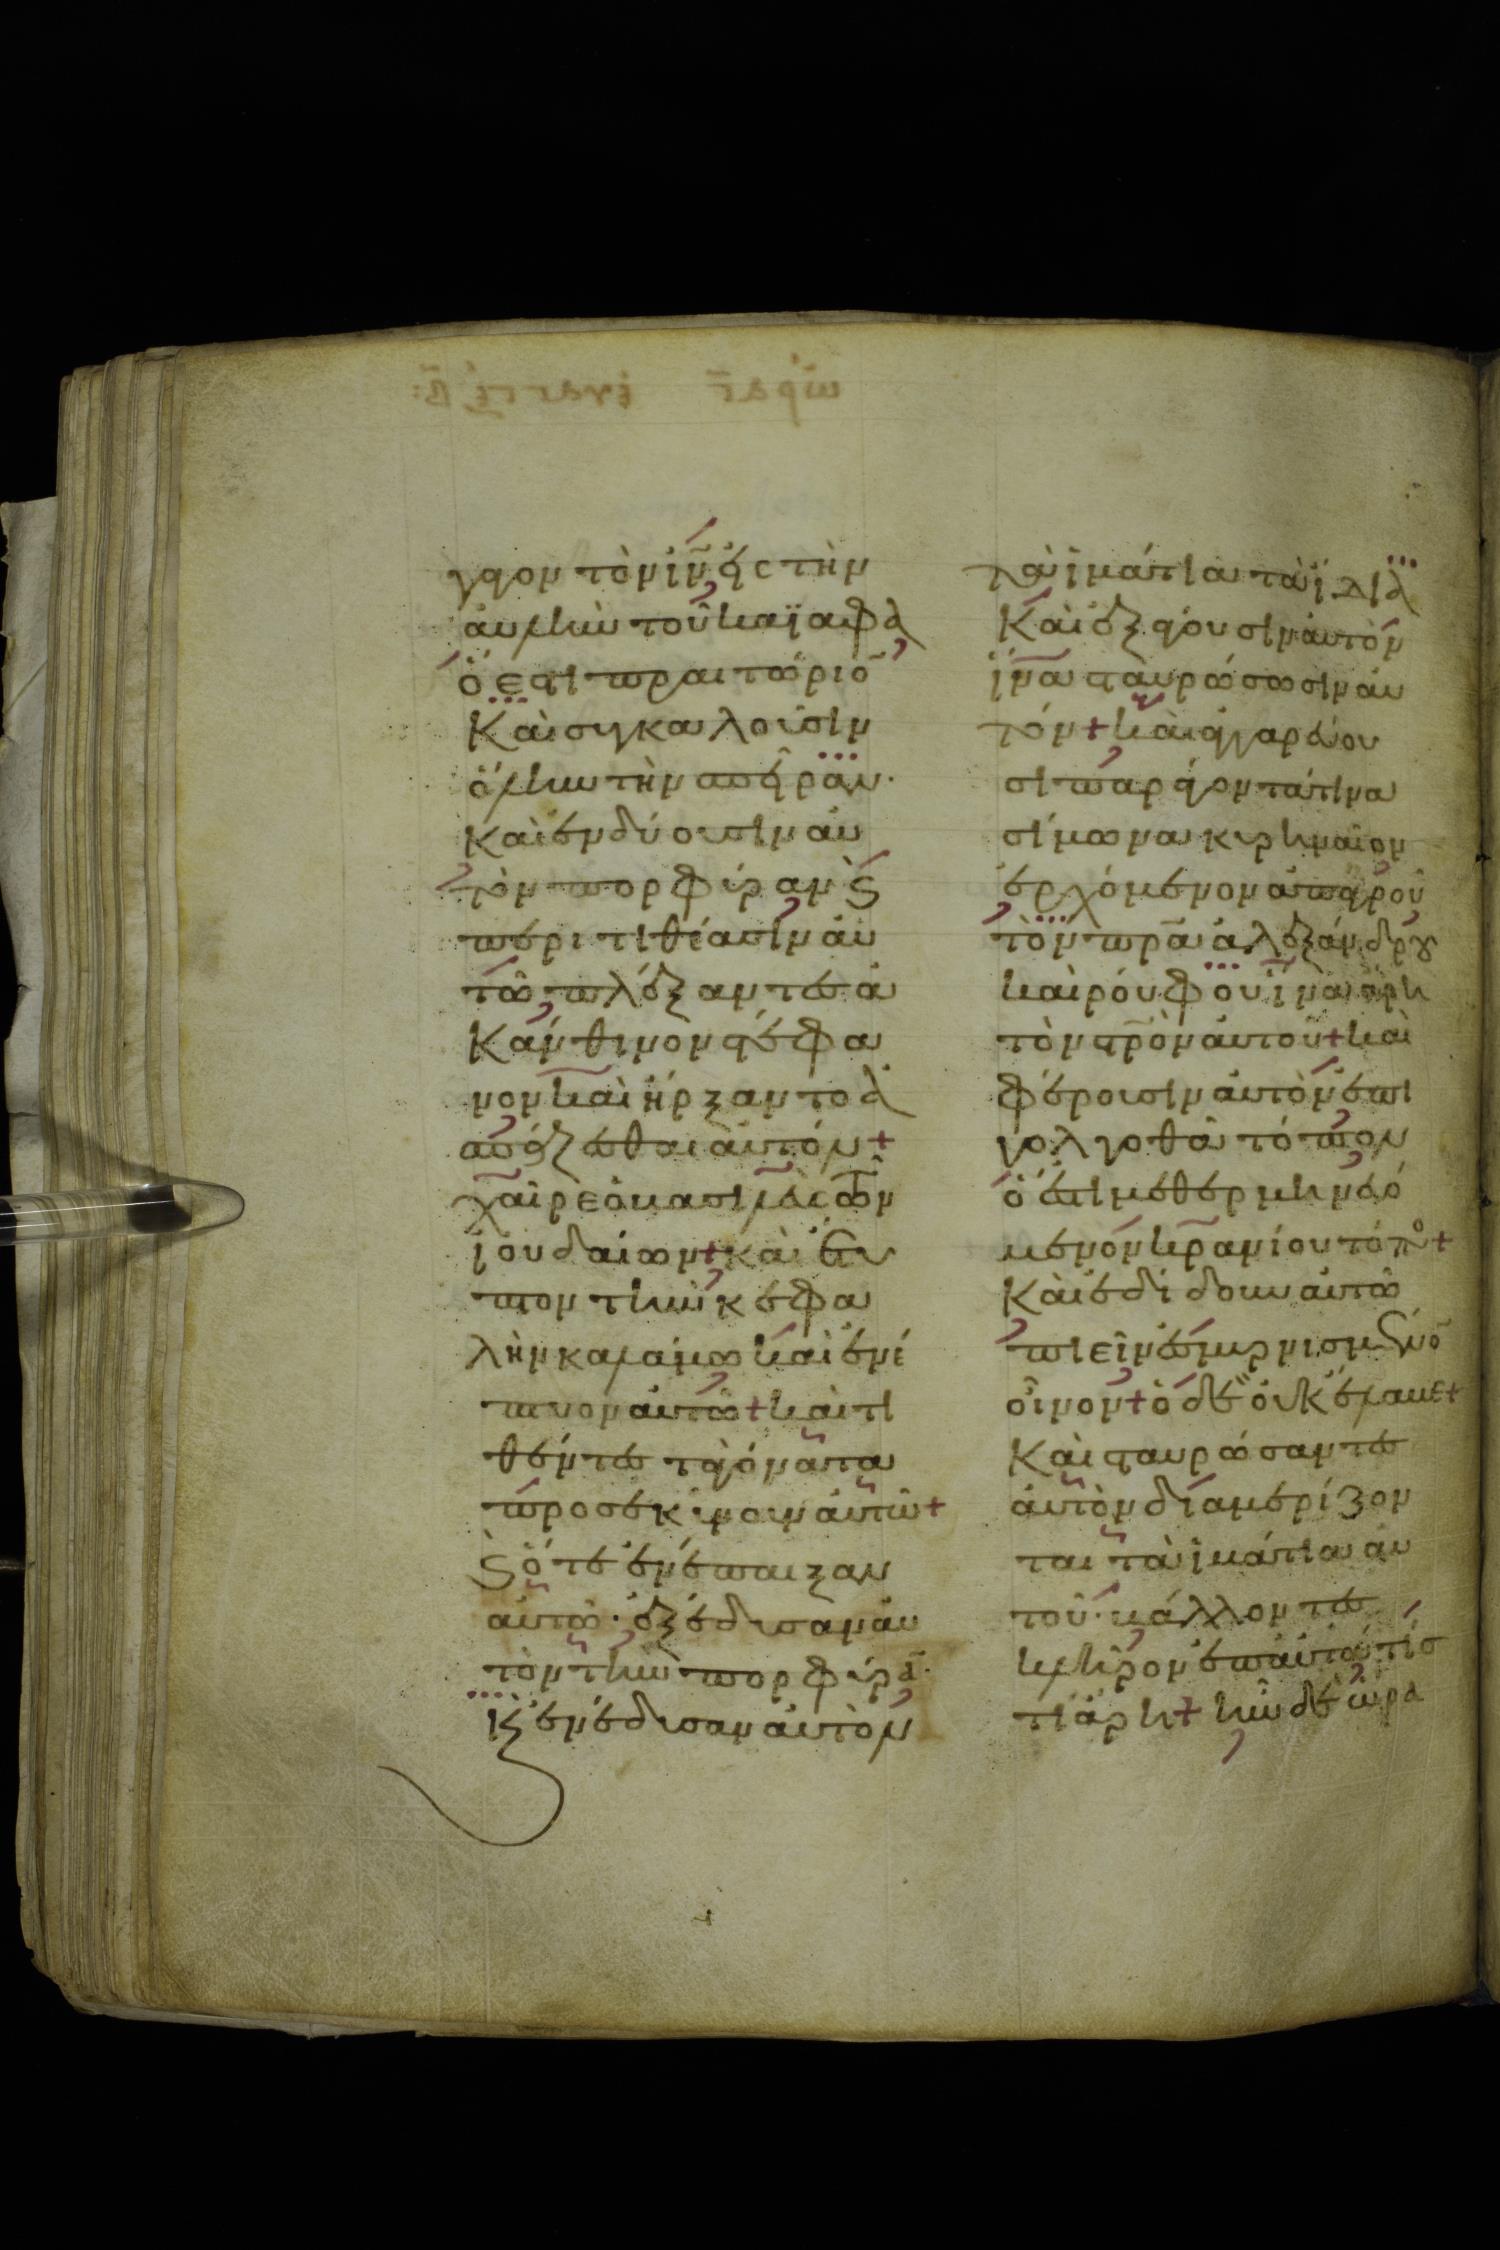 γαγον τὸν ἰν̅ εἰς τὴν
αὐλὴν τοῦ καϊάφα
ὅ ἐστι πραιτώριο̅
Καὶ συγκαλοῦσιν
ὅλην τὴν σπεῖραν·
Καὶ ἐνδύουσιν αὐ
τὸν πορφύραν ϗ
περιτιθέασιν αὐ
τῶ πλέξαντες ἀ
Κάνθινον στέφα
νον καὶ ἤρξαντο ἀ
σπάζεσθαι αὐτόν +
χαῖρε ὁ βασιλεὺς τῶν
ἰουδαίων + καὶ ἔτυ
πτον τὴν κεφα
λὴν καλάμω καὶ ἐνέ
πτυον αὐτῶ + καὶ τι
θέντες τὰ γόνατα
προσεκύνουν αὐτῶ +
ϗ ὅτε ἐνέπαιξαν
αὐτῶ· ἐξέδυσαν αὐ
τὸν τὴν πορφύρα̅·
ϗ ἐνέδυσαν αὐτὸν
τὰ ἱμάτια τὰ ἴδια
Καὶ ἐξάγουσιν αὐτὸν
ἵνα σταυρώσωσιν αὐ
τόν + καὶ ἀγγαρεύου
σι παράγοντά τινα
σίμωνα κυρηναῖον
ἐρχόμενον ἀπ ἀγροῦ
τὸν πρ̅α ἀλεξάνδρου
καὶ ρούφου ἵνα ἄρη
τὸν στ̅ρον αὐτοῦ + καὶ
φέρουσιν αὐτὸν ἐπὶ
γολγοθᾶ τόπον
ὅ ἐστι μεθερμηνευό
μενον κρανίου τόπος +
Καὶ ἐδίδουν αὐτῶ
πιεῖν ἐσμυρνισμένο̅
οἶνον + ὁ δὲ οὐκ ἔλαβε +
Καὶ σταυρώσαντες
αὐτὸν διαμερίζον
ται τὰ ἱμάτια αὐ
τοῦ· βάλλοντες
κλῆρον ἐπ αὐτὰ τίς
τί ἄρη + ἦν δὲ ὥρα